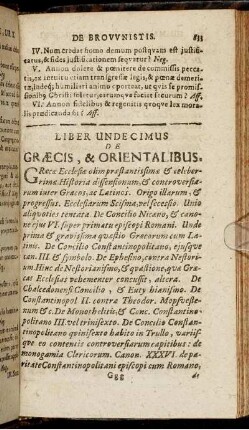 DE BROUUNISTIS.
IV. Num credat homo demum postquam est justifi-
catus, & fides justificationem sequatur? Neg.
V. Annon dolere & pœnitere de commissis pecca-
tis, ex
tis, indeq; humiliari animo oporteat, ut quis se promis-
sionibus Christi
VI. Annon fidelibus & regenitis quoque lex mora-
lis prædicanda sit? Aff.
LIBER UNDECIMUS
DE
GRÆCIS, & ORIENTALIBUS.
GRæcæ Ecclesiæ olim præstantissimæ & celeber-
rimæ Historia dissensionum, & controversia-
rum inter Græcos, ac Latinos. Origo illarum, &
progressus. Ecclesiarum Scisma, vel secessio. Unio
aliquoties tentata. De Concilio Nicæno, & cano-
ne ejus VI. super primatu episcopi Romani. Unde
prima & gravissima quæstio Græcorum cum La-
tinis. De Concilio Constantinopolitano, ejusque
can. III. & symbolo. De Ephesino, contra Nestori-
um. Hinc de Nestorianismo, & quæstione, qua Græ-
cæ Ecclesiæ vehementer concussæ, altera. De
Chalcedonensi Concilio, & Eutychianismo. De
Constantinopol. II. contra Theodor. Mopsveste-
num & c. De Monothelitis, & Conc. Constantino-
politano III. vel trinisexto. De Concilio Constan-
tinopolitano quinisexto habito in Trullo, variis-
que eo contentis controversiarum capitibus: de
monogamia Clericorum. Canon. XXXVI. de pa-
ritate Constantinopolitani episcopi cum Romano,
Ggg